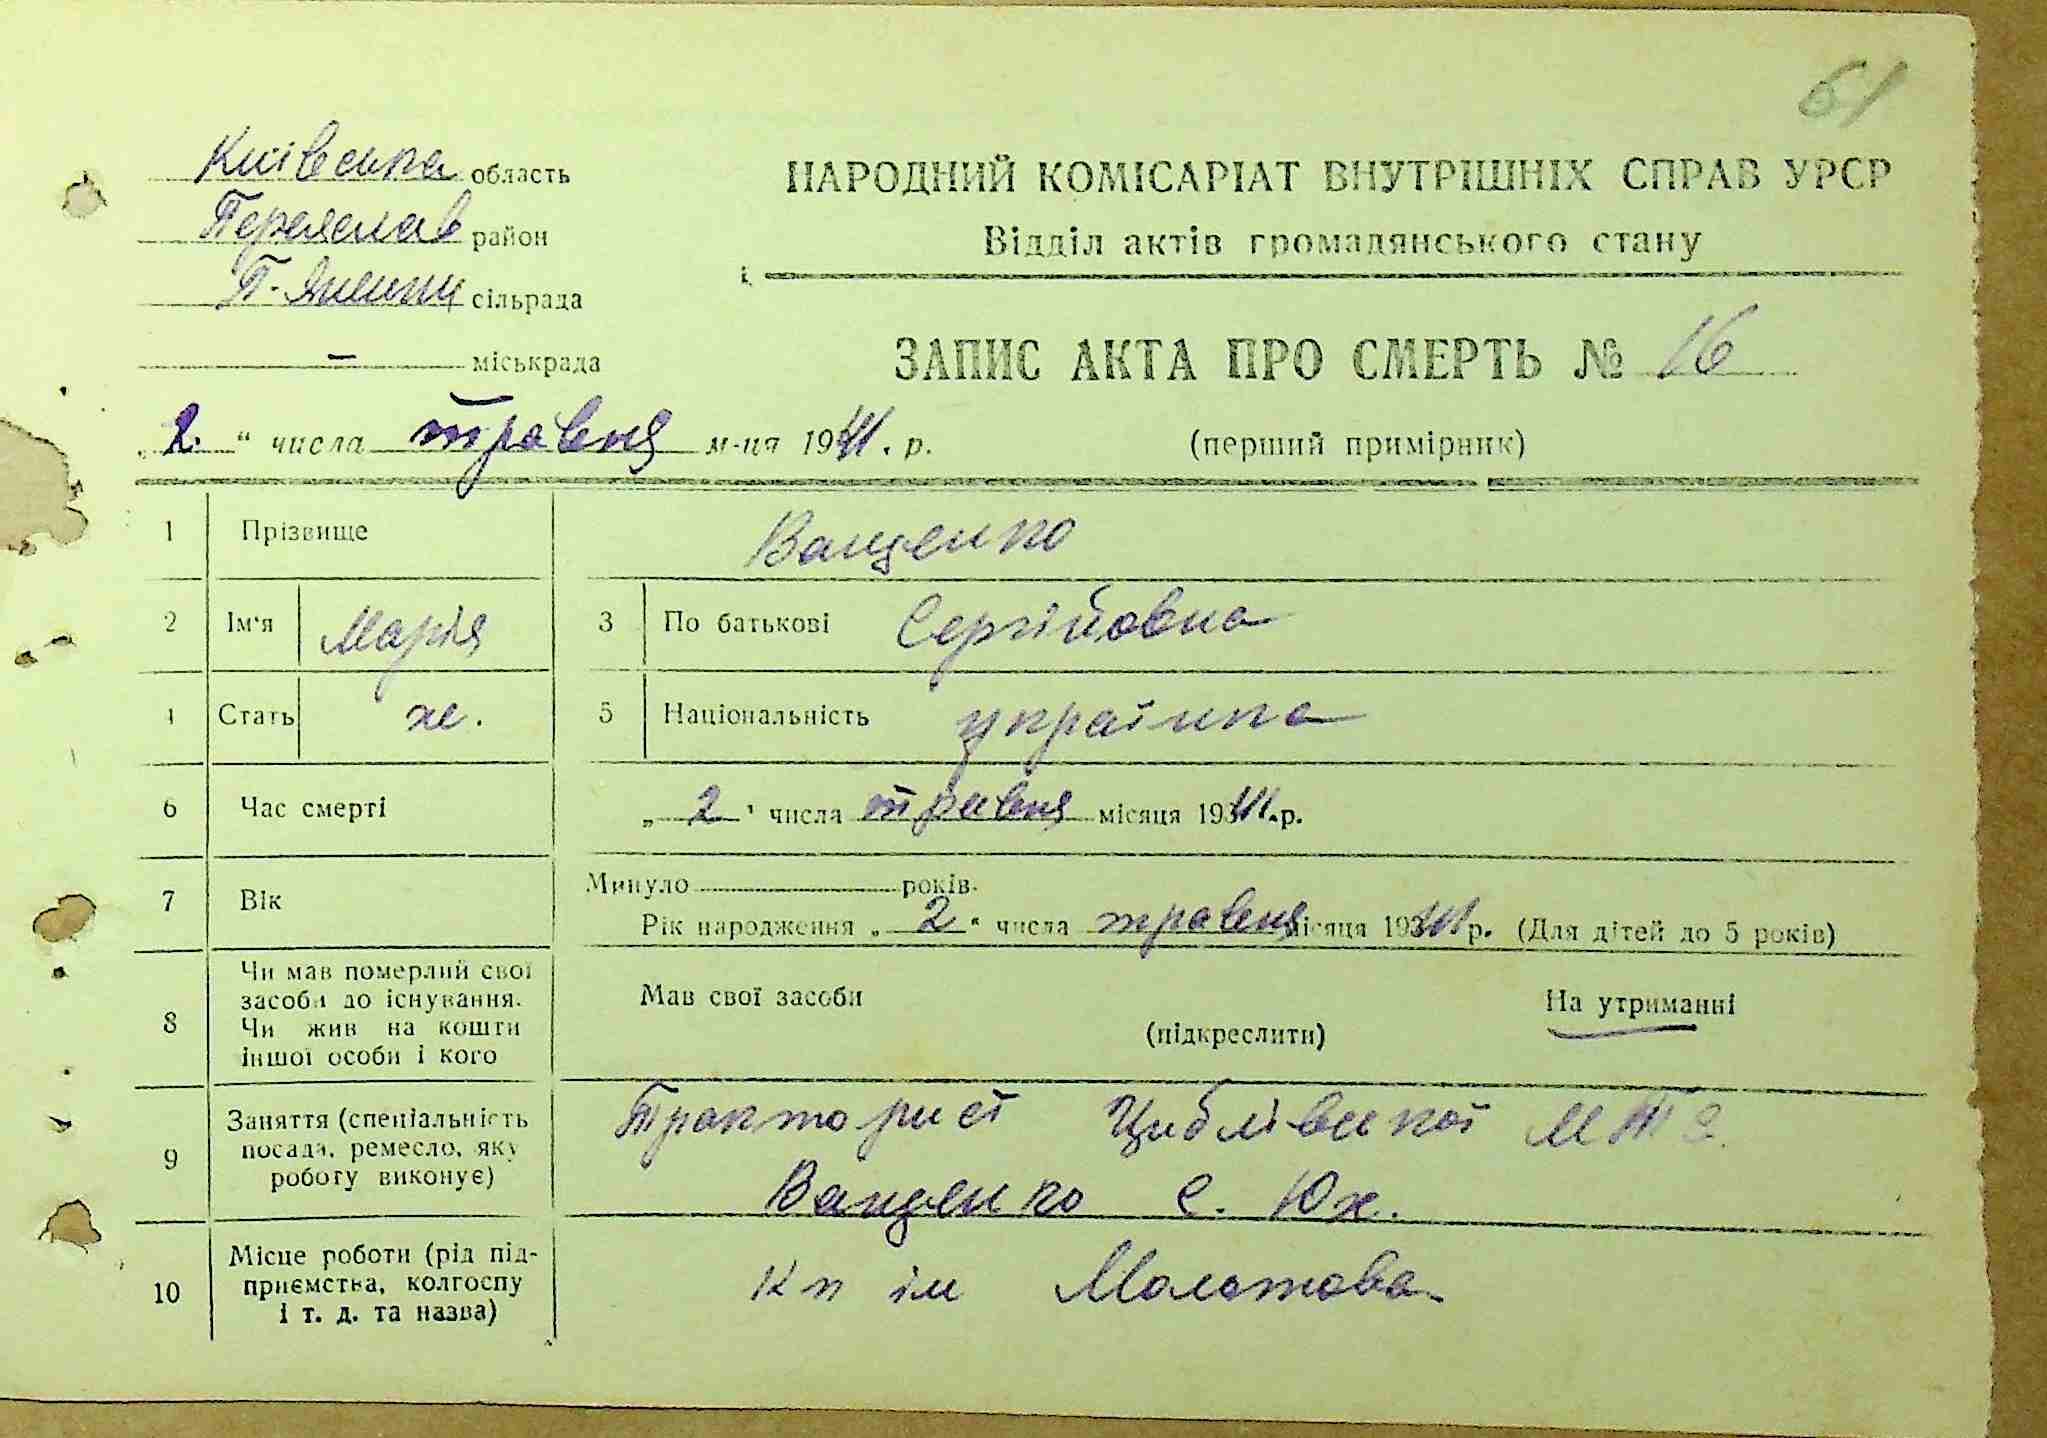 61
Київська область
Переяслав район
П-Яненки сільрада
— міськрада
НАРОДНИЙ КОМІСАРІАТ ВНУТРІШНІХ СПРАВ УРСР
Відділ актів громадянського стану
ЗАПИС АКТА ПРО СМЕРТЬ № 16
„2.“ числа травня м-ця 1941. р.
(перший примірник)
1 Прізвище Ващенко
2 Ім'я Марія 3 По батькові Сергійовна
4 Стать ж. 5 Національність українка
6 Час смерті „2" числа травня місяця 1941.р.
7 Вік Минуло років.
Рік народження „2“ числа травня місяця 1941 р. (Для дітей до 5 років)
8 Чи мав померлий свої
засоби до існування.
Чи жив на кошти
іншої особи і кого
Мав свої засоби
(підкреслити)
На утриманні
9 Заняття (спеціальність
посада, ремесло, яку
роботу виконує)
Тракторист Циблівскої МТС
Ващенко С. Юх.
10 Місце роботи (рід під-
приємства, колгоспу
і т. д. та назва)
Кп ім Молотова